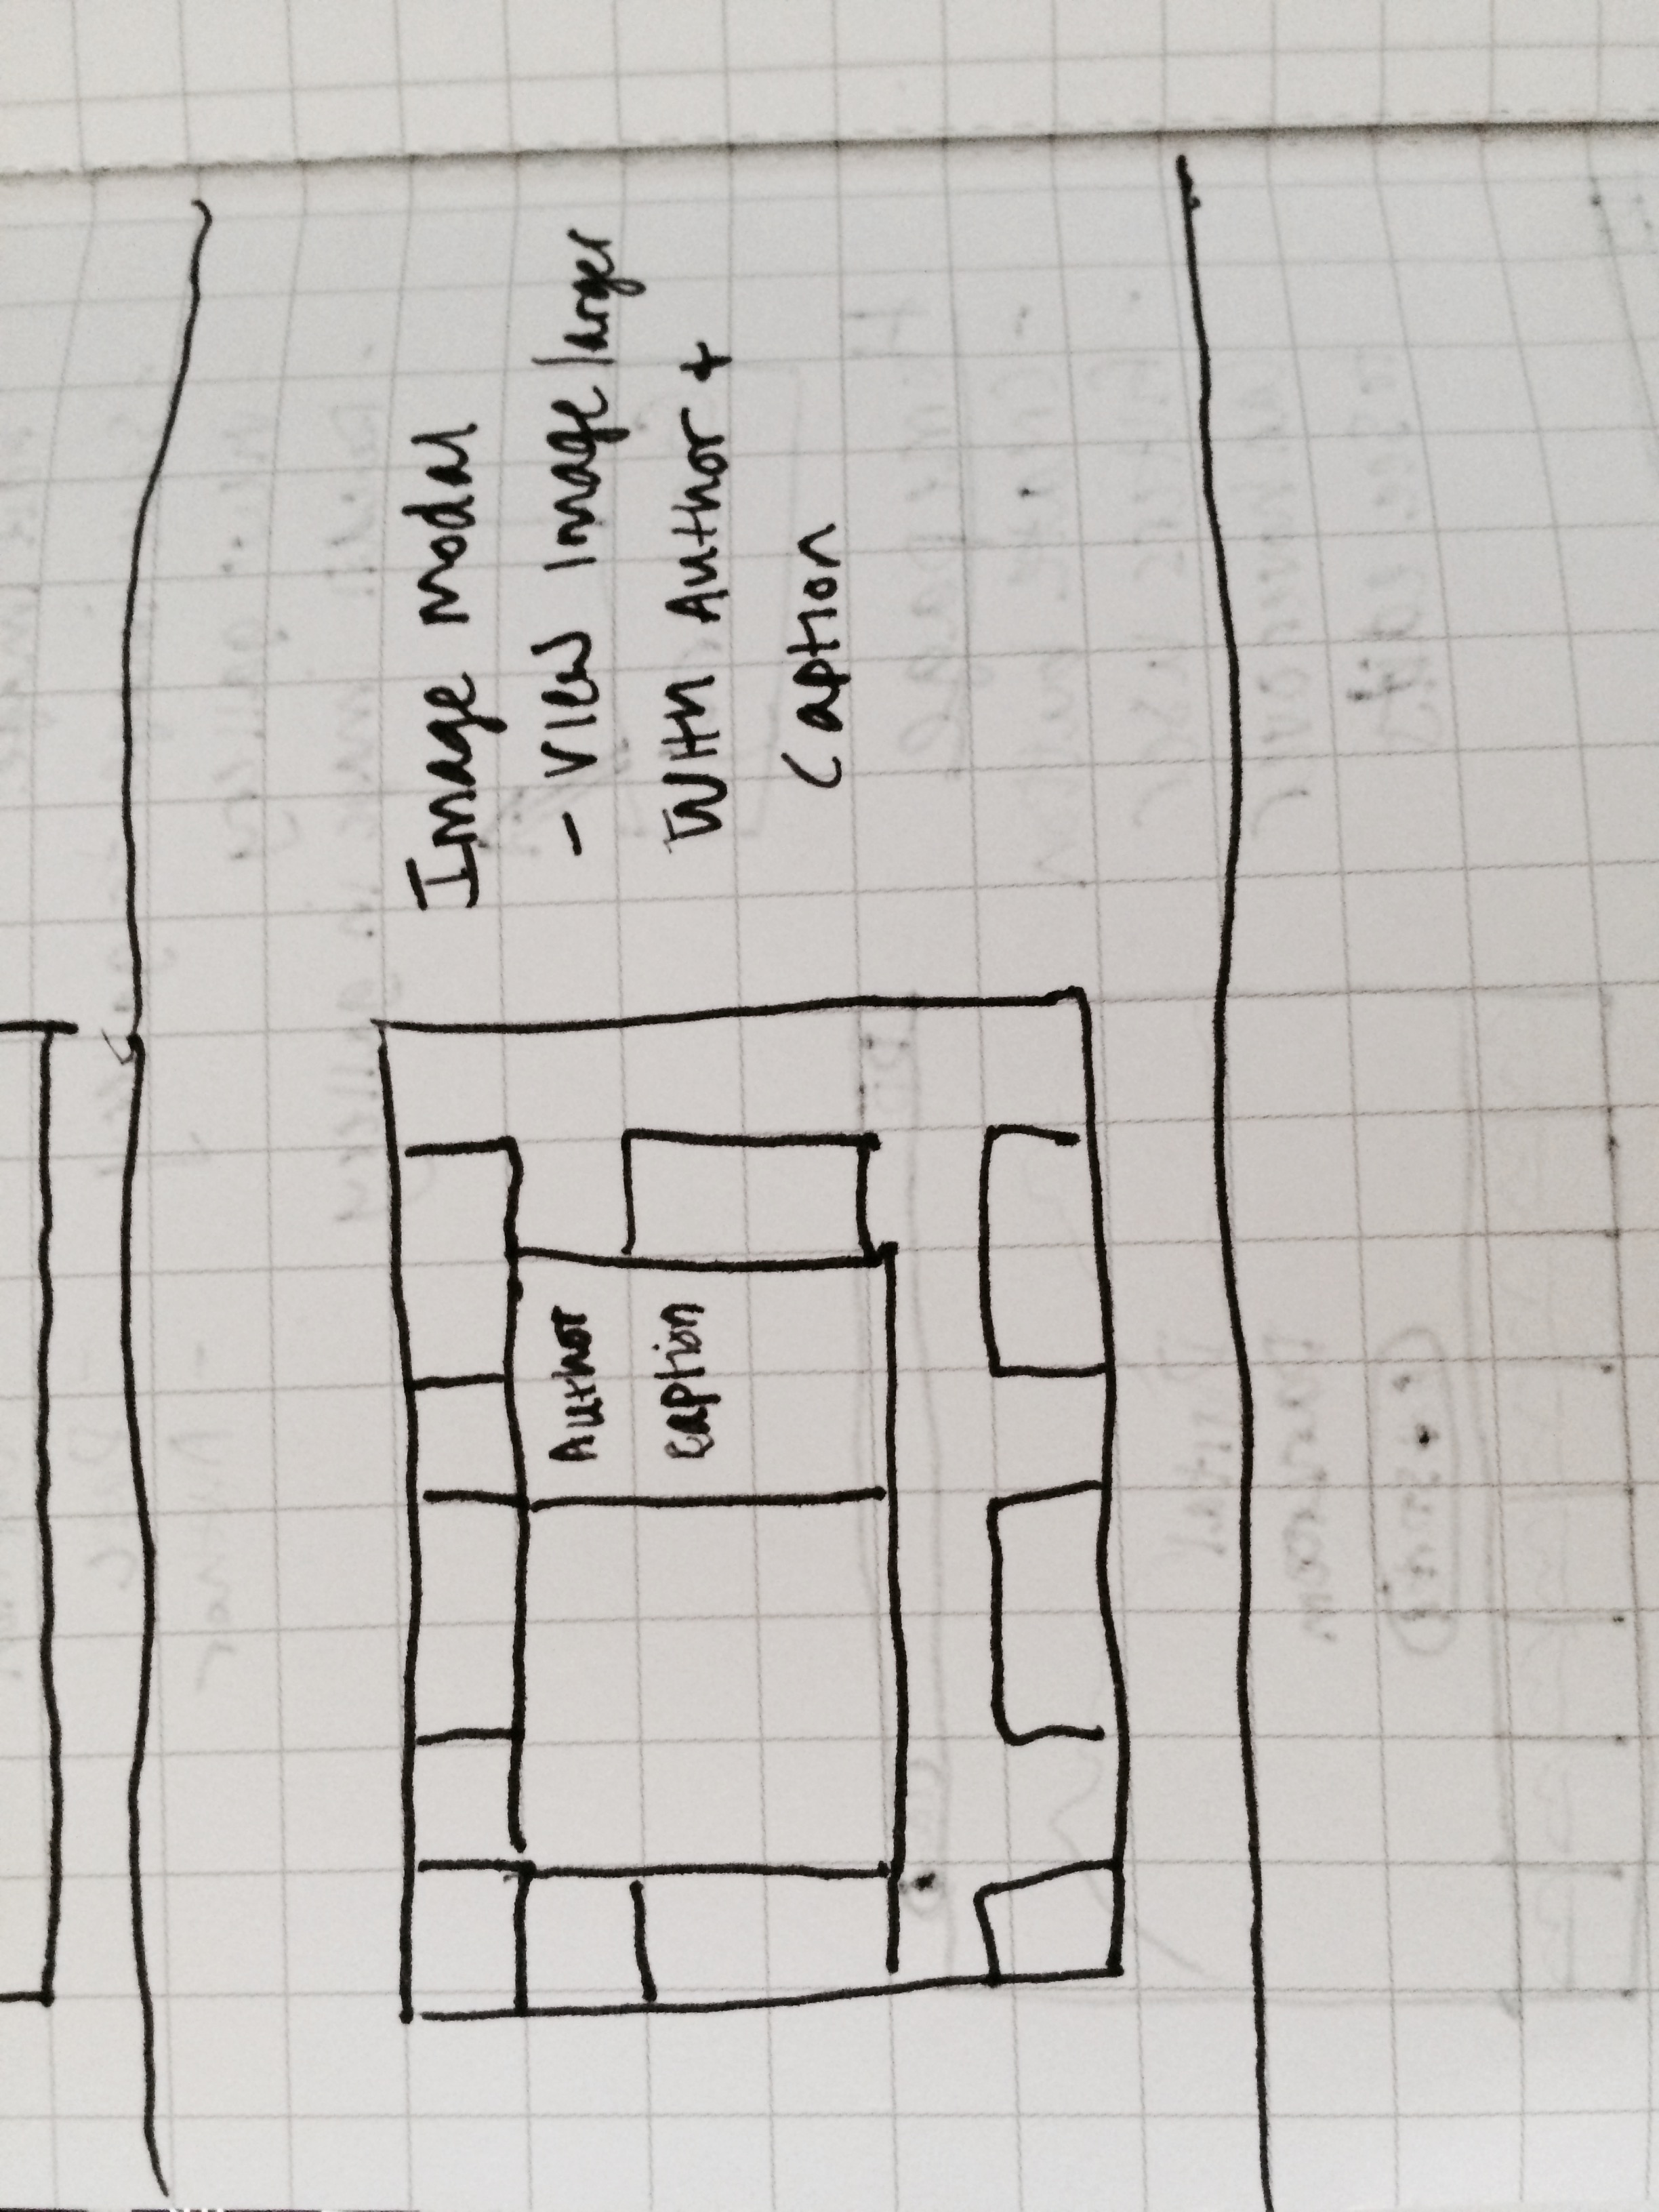 Author
Caption
Image Modal
- View Image larger
With Author +
Caption